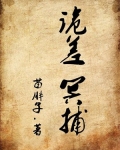 诡差
冥捕
苗胖子·著